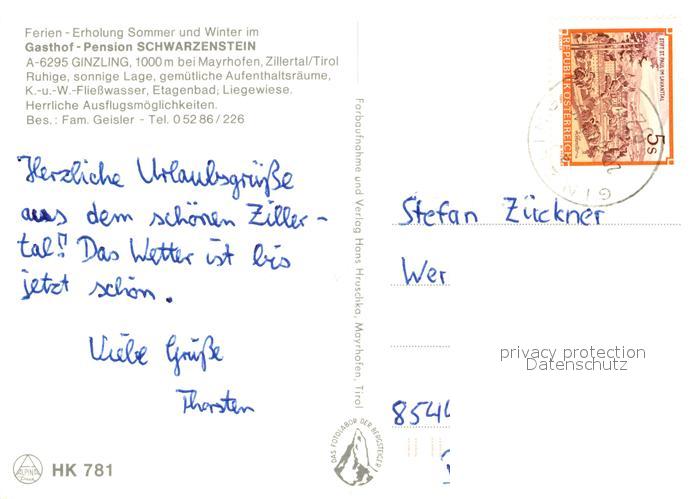 Ferien - Erholung Sommer und Winter im
Gasthof - Pension SCHWARZENSTEIN
A-6295 GINZLING, 1000 m bei Mayrhofen, Zillertal/Tirol
Ruhige, sonnige Lage, gemütliche Aufenthaltsräume,
K.-u.-W.-Fließwasser, Etagenbad; Liegewiese.
Herrliche Ausflugsmöglichkeiten.
Bes.: Fam. Geisler - Tel. 0 52 86 / 226
Herzliche Urlaubsgrüße
aus dem schönen Ziller-
tal!! Das Wetter ist bis
jetzt schön.
Viele Grüße
Thorsten
ALPINA
HK 781
Farbaufnahme und Verlag Hans Hruschka, Mayrhofen, Tirol
DAS FOTOLABOR DER BERGSTEIGER
REPUBLIK ÖSTERREICH
STIFT ST. PAUL IM LAVANTTAL
5 S
Stefan Zückner
Wer
privacy protection
Datenschutz
8544